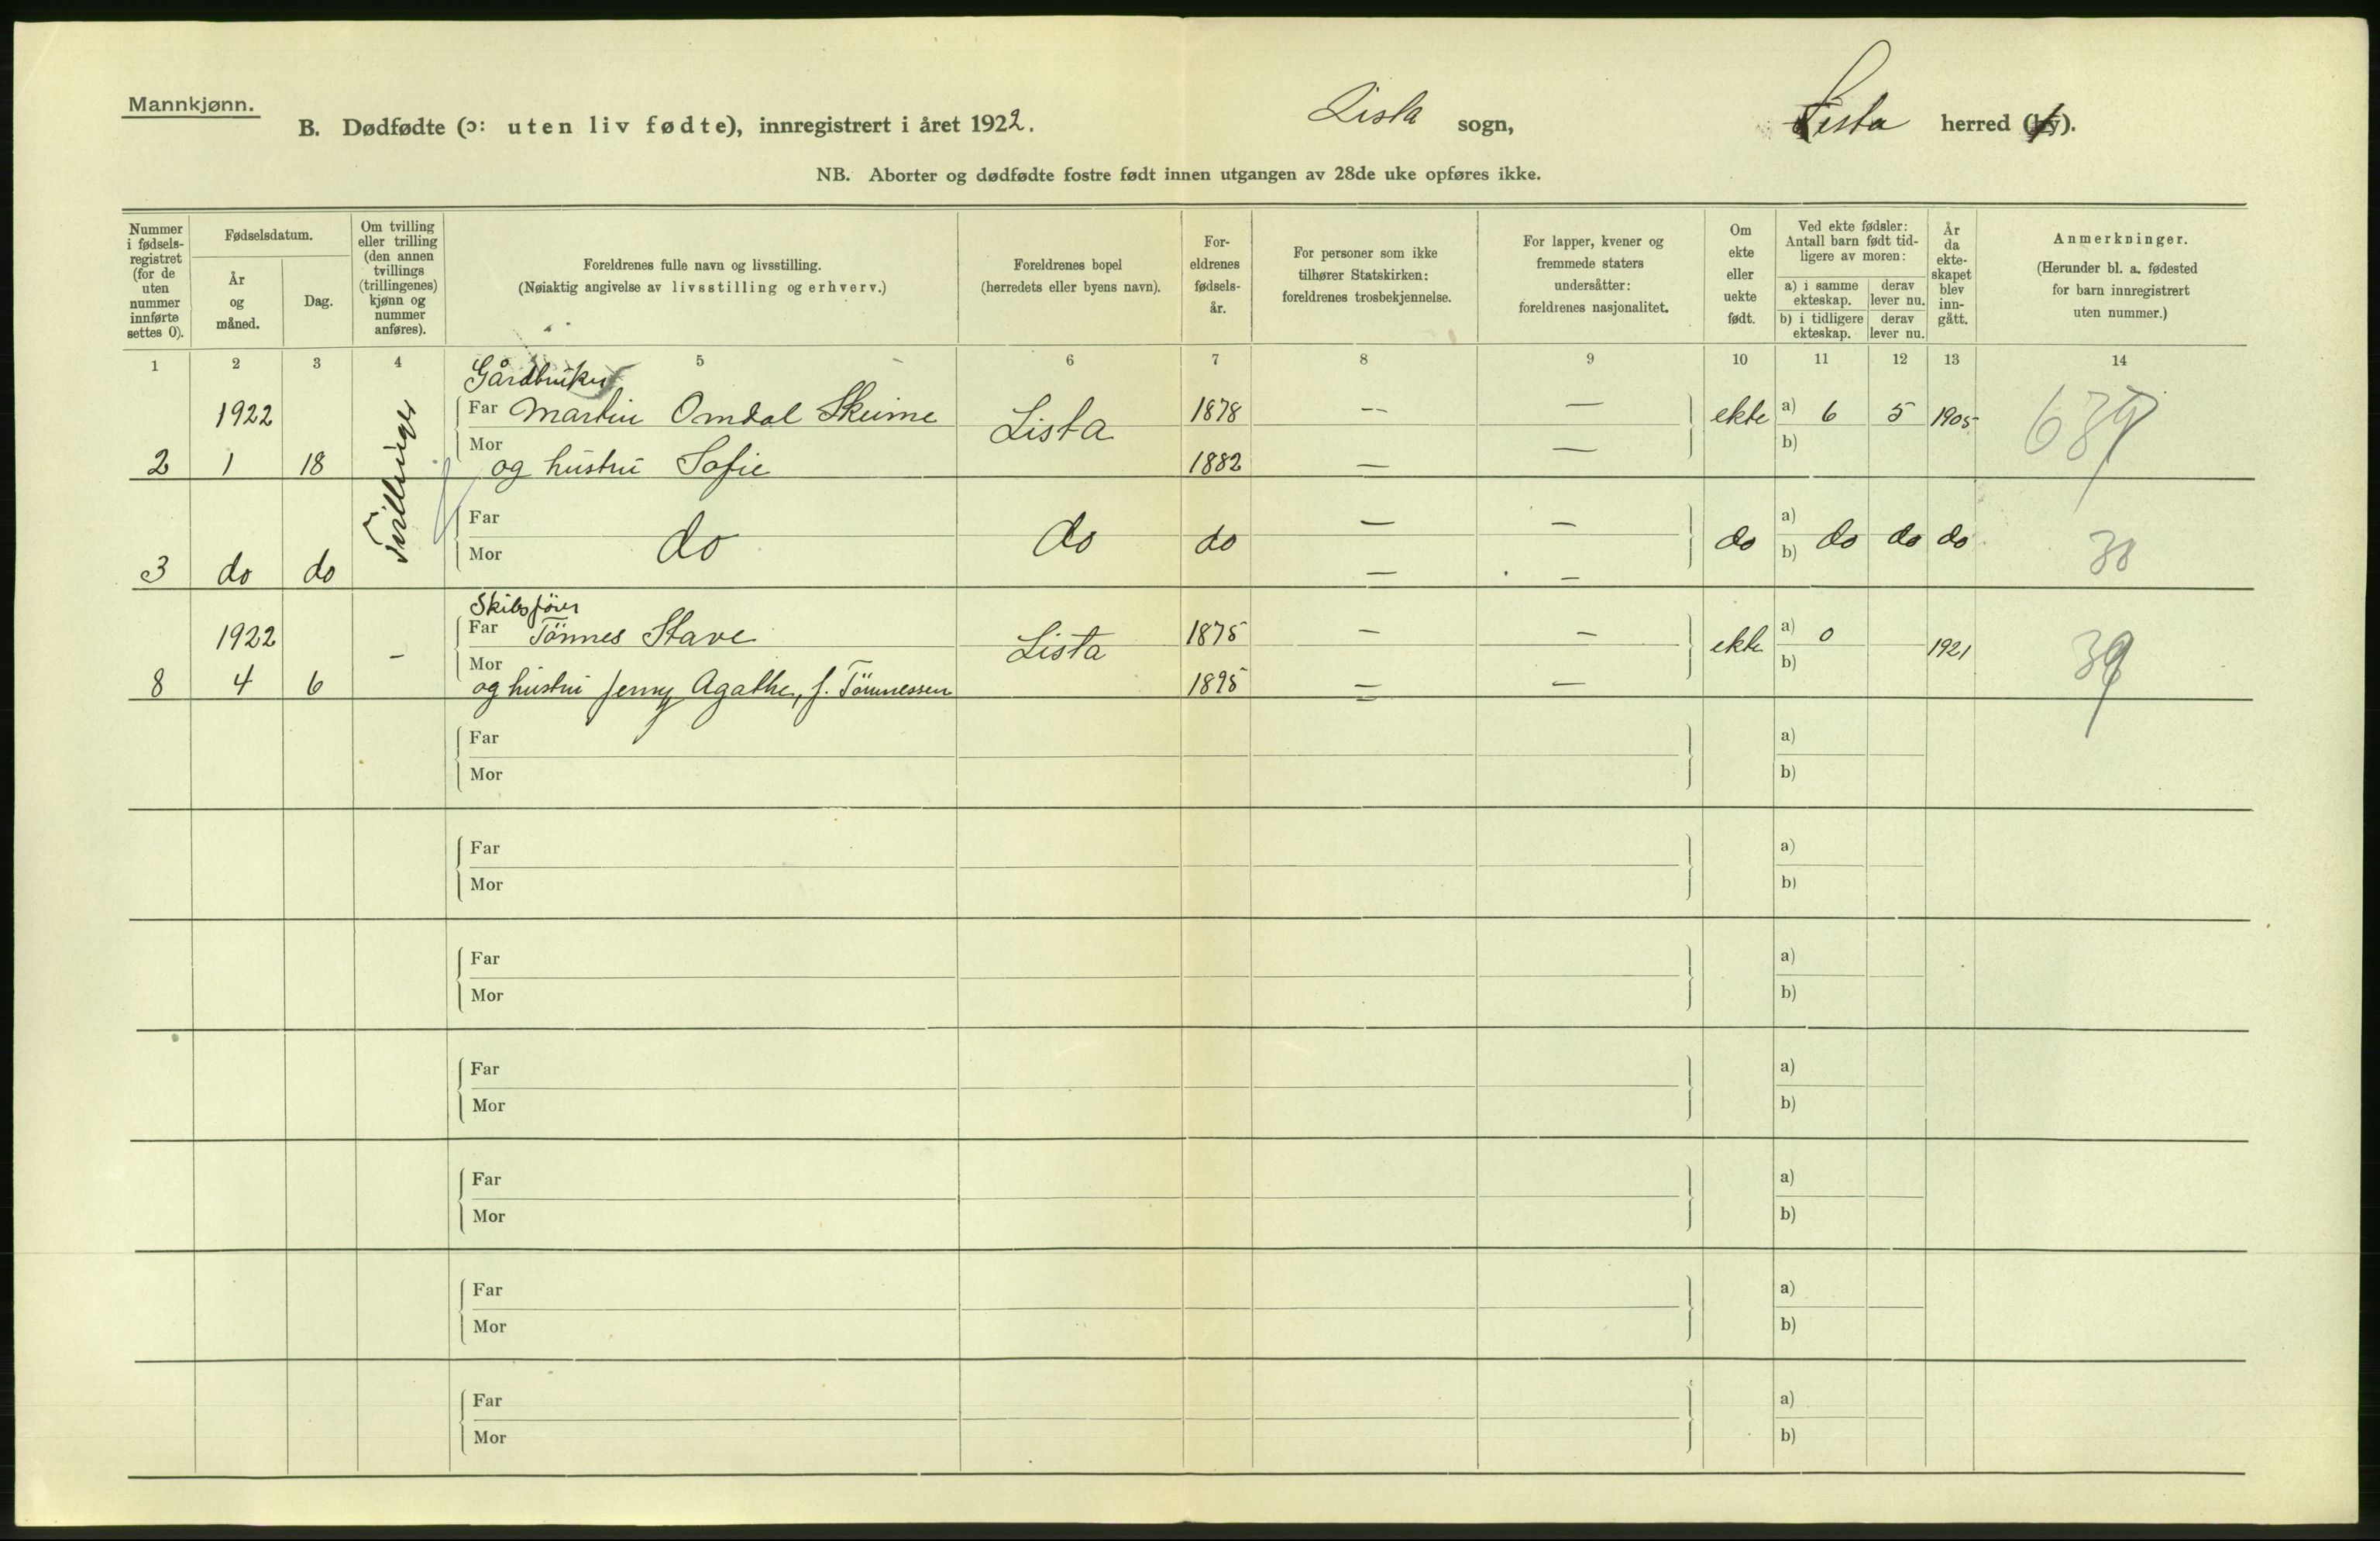 Mannkjønn.
B. Dødfødte (ɔ: uten liv fødte), innregistrert i året 1922. Lista sogn, Lista herred (by).
NB. Aborter og dødfødte fostre født innen utgangen av 28de uke opføres ikke.
Nummer i fødsels-registret (for de uten nummer innførte settes 0).
Fødselsdatum.
År og måned.
Dag.
Om tvilling eller trilling (den annen tvillings (trillingenes) kjønn og nummer anføres).
Foreldrenes fulle navn og livsstilling.
(Nøiaktig angivelse av livsstilling og erhverv.)
Foreldrenes bopel
(herredets eller byens navn).
For-eldrenes fødsels-år.
For personer som ikke tilhører Statskirken: foreldrenes trosbekjennelse.
For lapper, kvener og fremmede staters undersåtter: foreldrenes nasjonalitet.
Om ekte eller uekte født.
Ved ekte fødsler: Antall barn født tid-ligere av moren:
a) i samme ekteskap.
derav lever nu.
b) i tidligere ekteskap.
derav lever nu.
År da ekte-skapet blev inn-gått.
Anmerkninger.
(Herunder bl. a. fødested for barn innregistrert uten nummer.)
1 2 3 4 5 6 7 8 9 10 11 12 13 14
Gårdbruker
1922 Far Martin Omdal Skeime Lista 1878 -- — ekte a) 6 5 1905
Mor b)
2 1 18 og hustru Sofie 1882 — —
Tvillinger
Far — — a)
do do do do do do do
Mor b)
3 do do — — 30
Skibsfører
1922 Far Tönnes Stave Lista 1875 — — ekte a) 0 1921 39
Mor b)
8 4 6 - og hustru Jenny Agathe, f. Tönnessen 1895 — —
Far a)
Mor b)
Far a)
Mor b)
Far a)
Mor b)
Far a)
Mor b)
Far a)
Mor b)
Far a)
Mor b)
Far a)
Mor b)